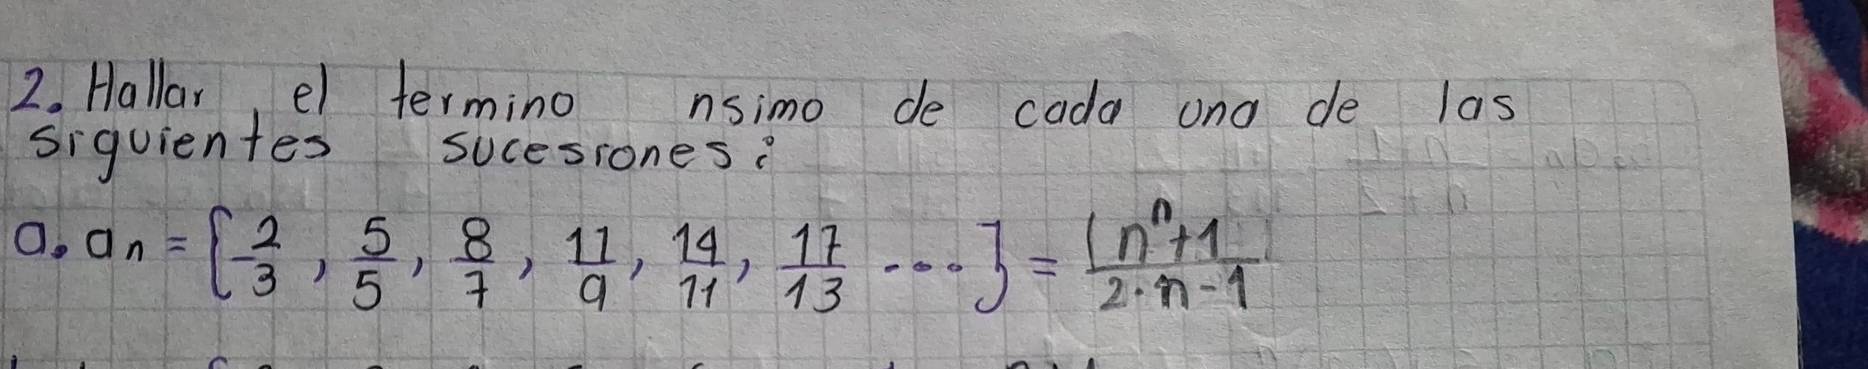 2. Hallar el termino nsimo de cada una de las
siguientes sucesiones:
a. an = { 2/3, 5/5, 8/7, 11/9, 14/11, 17/13 ... } = (n^n+1)/(2·n-1)